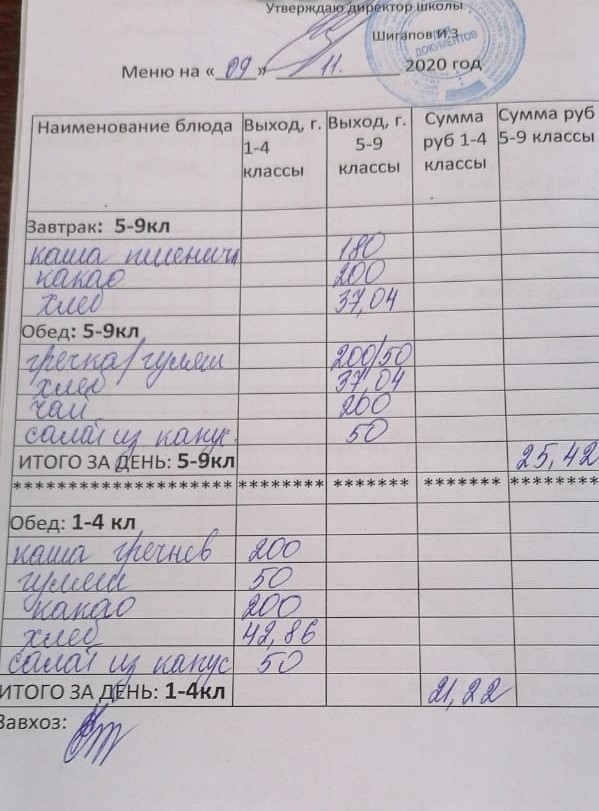 Утверждаю директор школы
Шигапов И.З
ДОКУМЕНТОВ
Меню на «09» 11. 2020 год
Наименование блюда Выход, г. 1-4 классы Выход, г. 5-9 классы Сумма руб 1-4 классы Сумма руб 5-9 классы
Завтрак: 5-9кл
каша пшеничн 180
какао 200
хлеб 37,04
Обед: 5-9кл
гречка/гуляш 200/50
хлеб 37,04
чай 200
салат из капус. 50
ИТОГО ЗА ДЕНЬ: 5-9кл 25,42
******************** ******** ******* ******* ********
Обед: 1-4 кл
каша гречнев 200
гуляш 50
какао 200
хлеб 42,86
салат из капус 50
ИТОГО ЗА ДЕНЬ: 1-4кл 21,22
Завхоз: